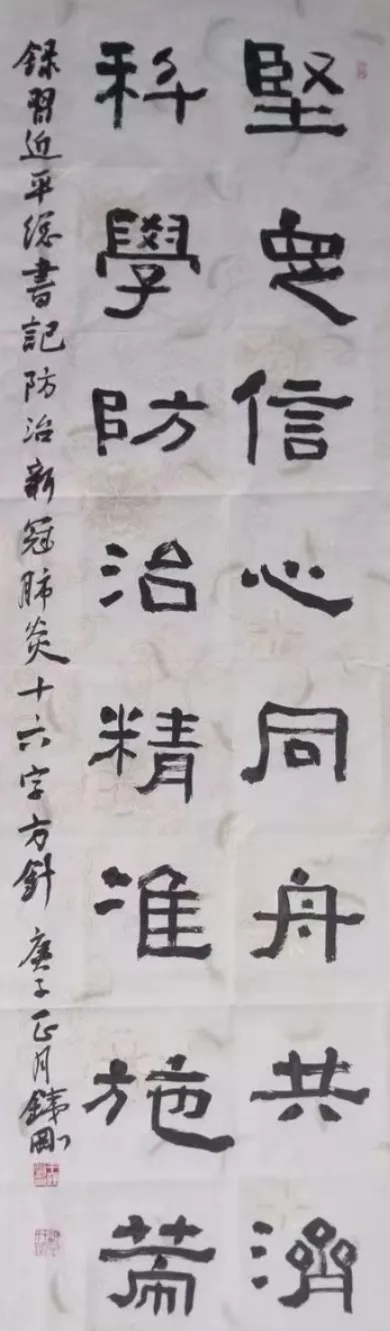 堅定信心同舟共濟
科學防治精准施策
録習近平總書記防治新冠肺炎十六字方針 庚子正月 剛